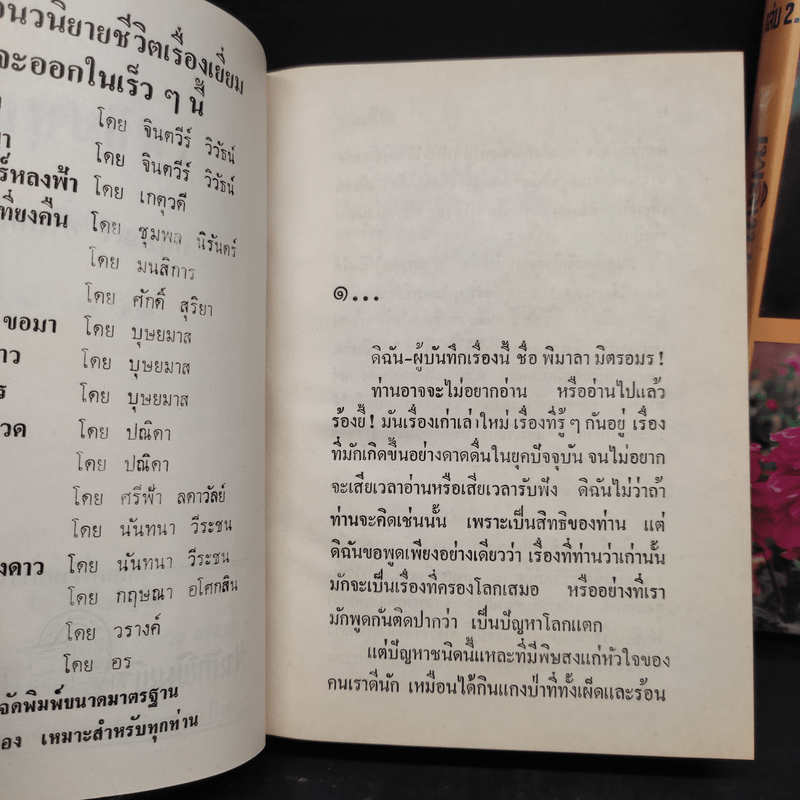 นวนิยายชีวิตเรื่องเยี่ยม
จะออกในเร็ว ๆ นี้
โดย จินตวีร์ วิวัธน์
โดย จินตวีร์ วิวัธน์
หลงฟ้า โดย เกตุวดี
เที่ยงคืน โดย ชุมพล นิรันดร์
โดย มนสิการ
โดย ศักดิ์ สุริยา
ขอมา โดย บุษยมาส
โดย บุษยมาส
โดย บุษยมาส
โดย ปณิดา
โดย ปณิดา
โดย ศรีฟ้า ลดาวัลย์
โดย นันทนา วีระชน
โดย นันทนา วีระชน
โดย กฤษณา อโศกสิน
โดย วรางค์
โดย อร
จัดพิมพ์ขนาดมาตรฐาน
เหมาะสำหรับทุกท่าน
๑...
ดิฉัน-ผู้บันทึกเรื่องนี้ ชื่อ พิมาลา มิตรอมร !
ท่านอาจจะไม่อยากอ่าน หรืออ่านไปแล้ว
ร้องยี้ ! มันเรื่องเก่าเล่าใหม่ เรื่องที่รู้ ๆ กันอยู่ เรื่อง
ที่มักเกิดขึ้นอย่างดาดดื่นในยุคปัจจุบัน จนไม่อยาก
จะเสียเวลาอ่านหรือเสียเวลารับฟัง ดิฉันไม่ว่าถ้า
ท่านจะคิดเช่นนั้น เพราะเป็นสิทธิของท่าน แต่
ดิฉันขอพูดเพียงอย่างเดียวว่า เรื่องที่ท่านว่าเก่านั้น
มักจะเป็นเรื่องที่ครองโลกเสมอ หรืออย่างที่เรา
มักพูดกันติดปากว่า เป็นปัญหาโลกแตก
แต่ปัญหาชนิดนี้แหละที่มีพิษสงแก่หัวใจของ
คนเราดีนัก เหมือนได้กินแกงป่าที่ทั้งเผ็ดและร้อน
เล่ม 2